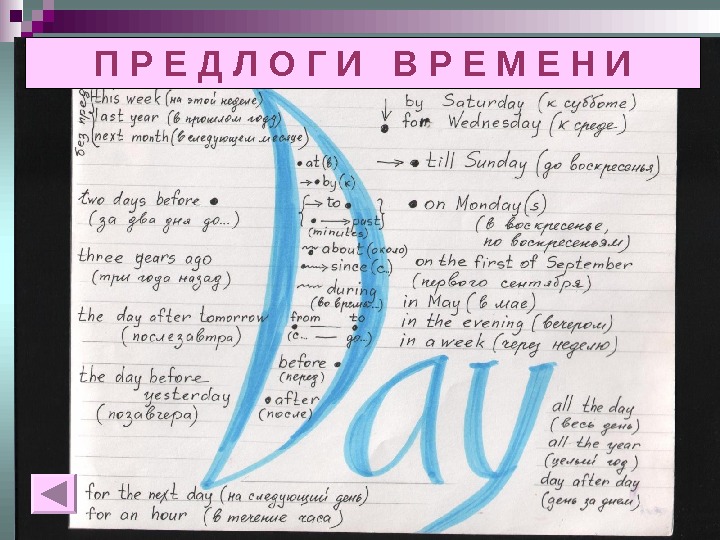 ПРЕДЛОГИ ВРЕМЕНИ
без пред
this week (на этой неделе)
last year (в прошлом году)
next month (в следующем месяце)
two days before
(за два дня до...)
three years ago
(три года назад)
the day after tomorrow
(послезавтра)
the day before
yesterday
(позавчера)
for the next day (на следующий день)
for an hour (в течение часа)
Day
at (в)
by (к)
to
past
(minutes)
about (около)
since (с..)
during
(во время...)
from to
(с... до...)
before
(перед)
after
(после)
by Saturday (к субботе)
for Wednesday (к среде)
till Sunday (до воскресенья)
on Monday(s)
(в воскресенье,
по воскресеньям)
on the first of September
(первого сентября)
in May (в мае)
in the evening (вечером)
in a week (через неделю)
all the day
(весь день)
all the year
(целый год)
day after day
(день за днем)